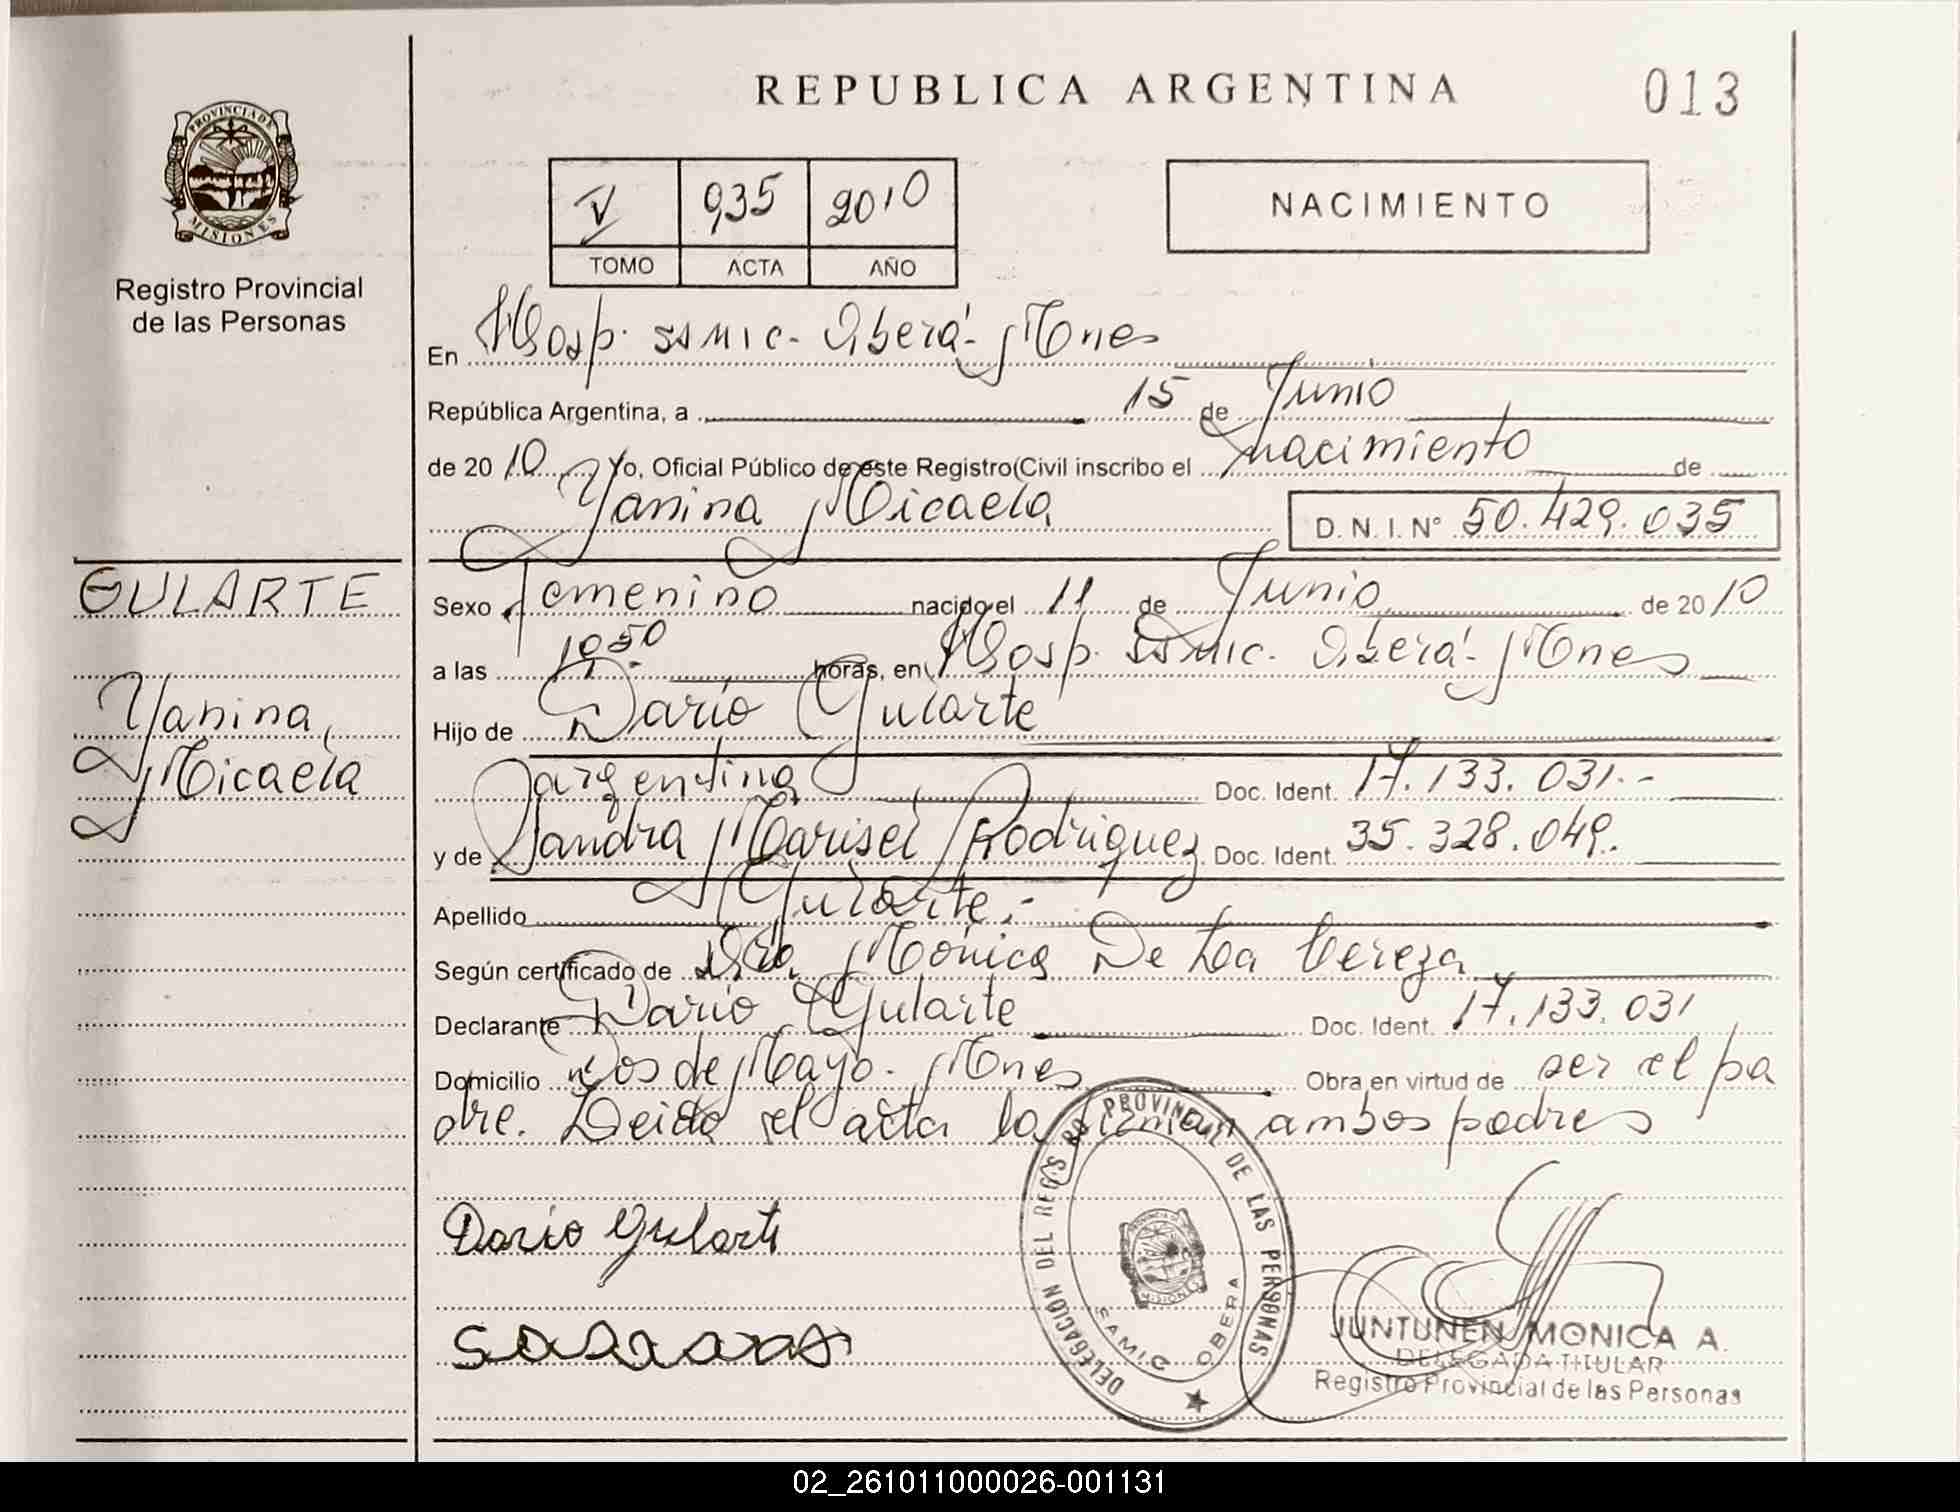 REPUBLICA ARGENTINA
013
PROVINCIA DE
MISIONES
Registro Provincial
de las Personas
V 935 2010
TOMO ACTA AÑO
NACIMIENTO
En Hosp. SAMIC - Oberá - Mnes
República Argentina, a 15 de Junio
de 20 10 Yo, Oficial Público de este Registro Civil inscribo el nacimiento de
Yanina Micaela D. N. I. N° 50.429.035
GULARTE
Yanina
Micaela
Sexo Femenino nacido el 11 de Junio de 20 10
a las horas, en Hosp. SAMIC. Oberá - Mnes
Hijo de Dario Gularte
argentina Doc. Ident. 17.133.031.-
y de Sandra Marisel Rodriguez Doc. Ident. 35.328.049.
Apellido Gularte.-
Según certificado de Dra. Mónica De La
Declarante Dario Gularte Doc. Ident. 17.133.031
Domicilio Dos de Mayo. Mnes Obra en virtud de ser el pa
dre. Leida el acta la firman ambos padres
Dario Gularte
DELEGACION DEL REGISTRO PROVINCIAL DE LAS PERSONAS
SAMIC OBERA
JUNTUNEN MONICA A.
DELEGADA TITULAR
Registro Provincial de las Personas
02_261011000026-001131